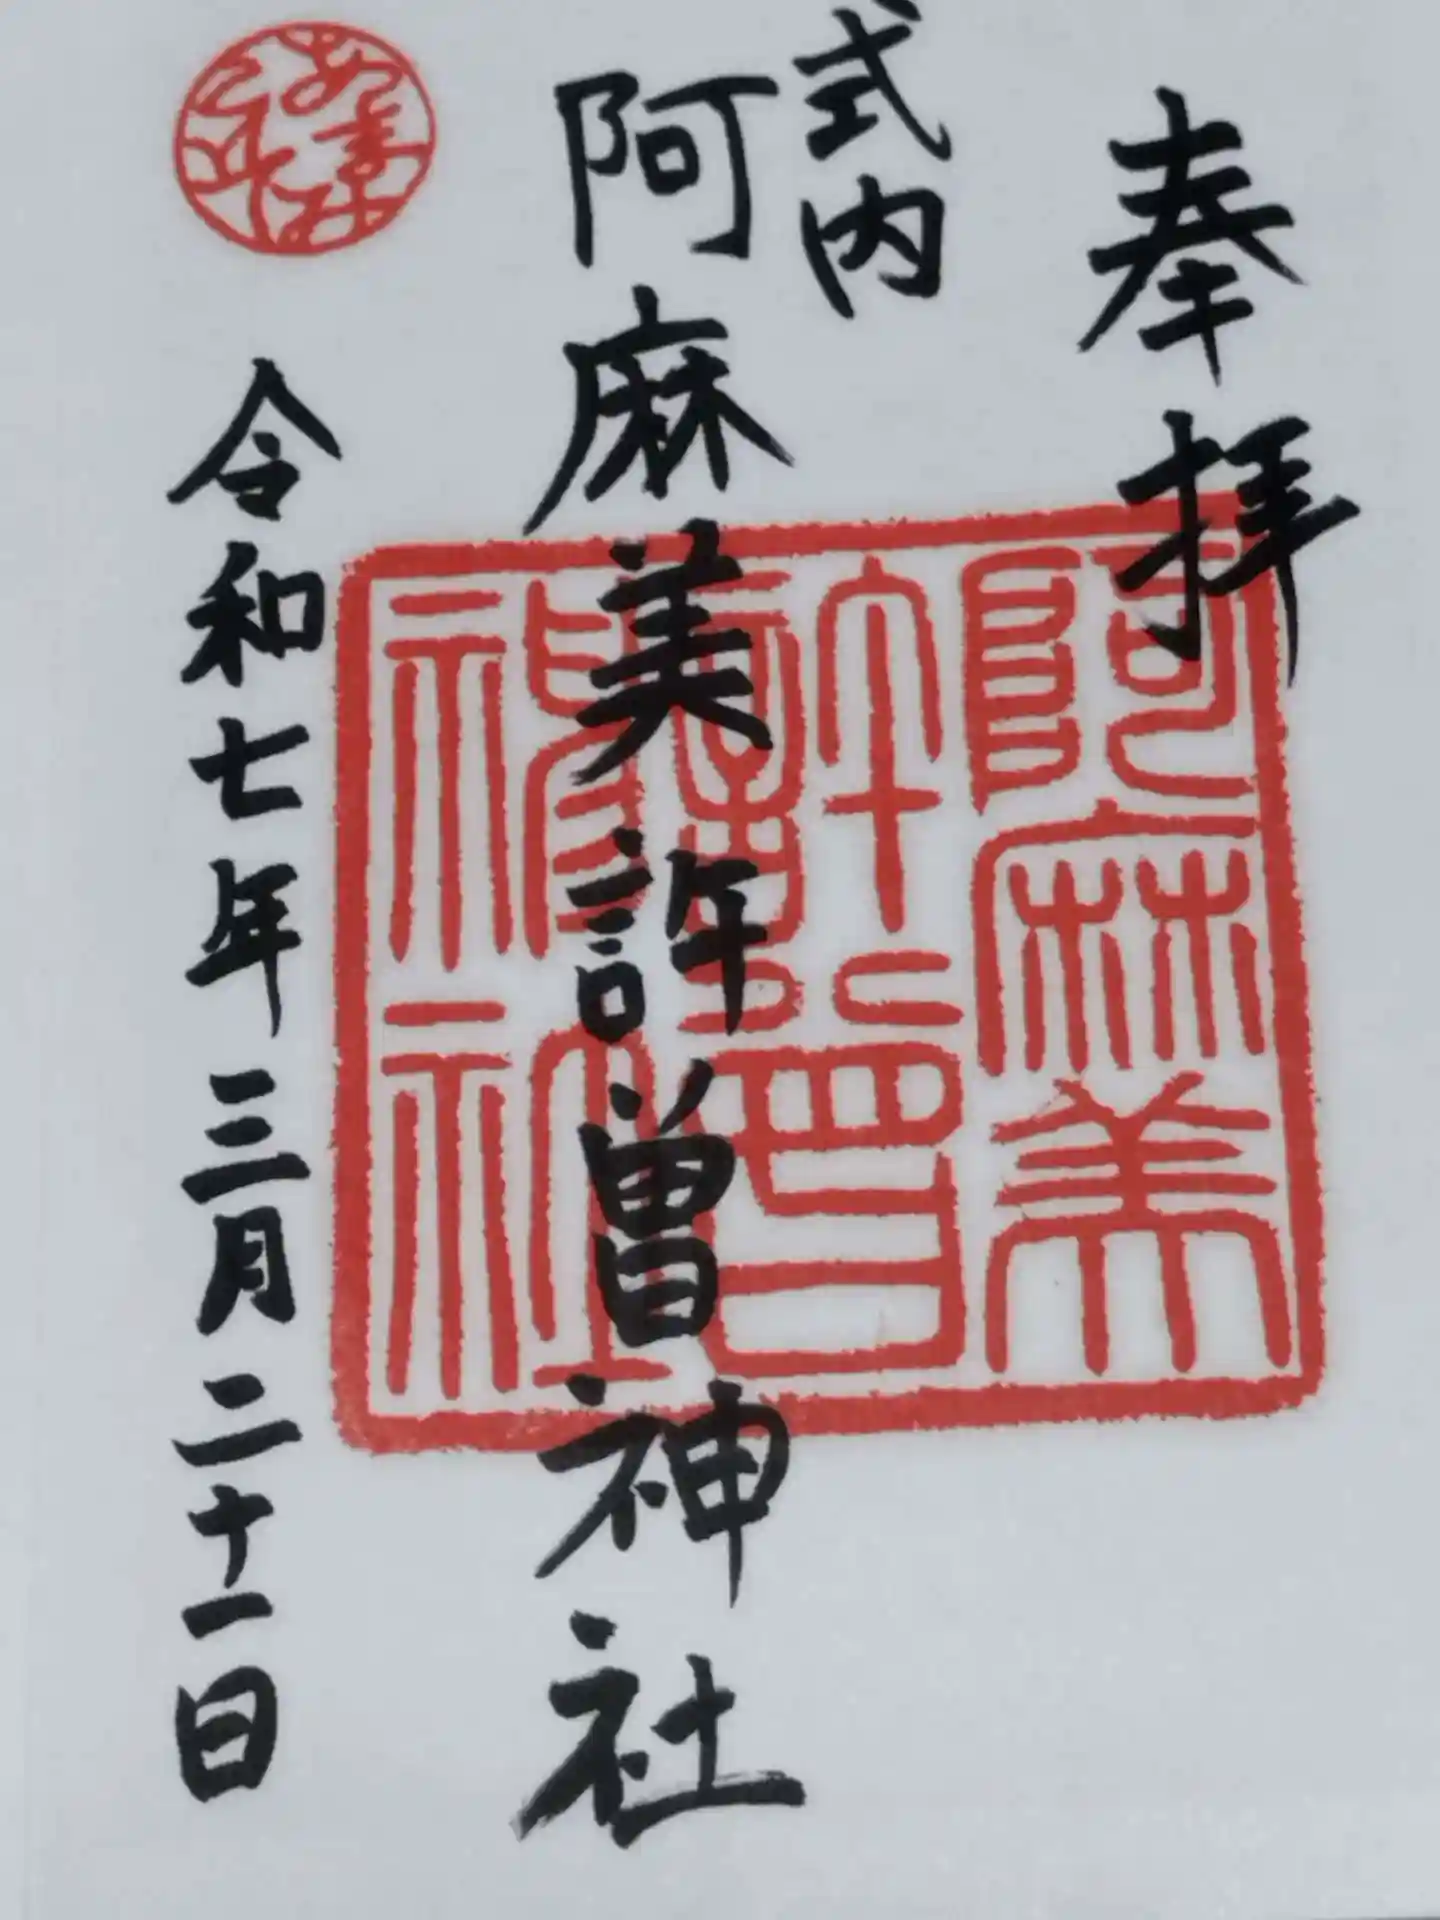 奉拝
式内
阿麻美許曽神社
令和七年三月二十一日
阿麻美
許曽
神社